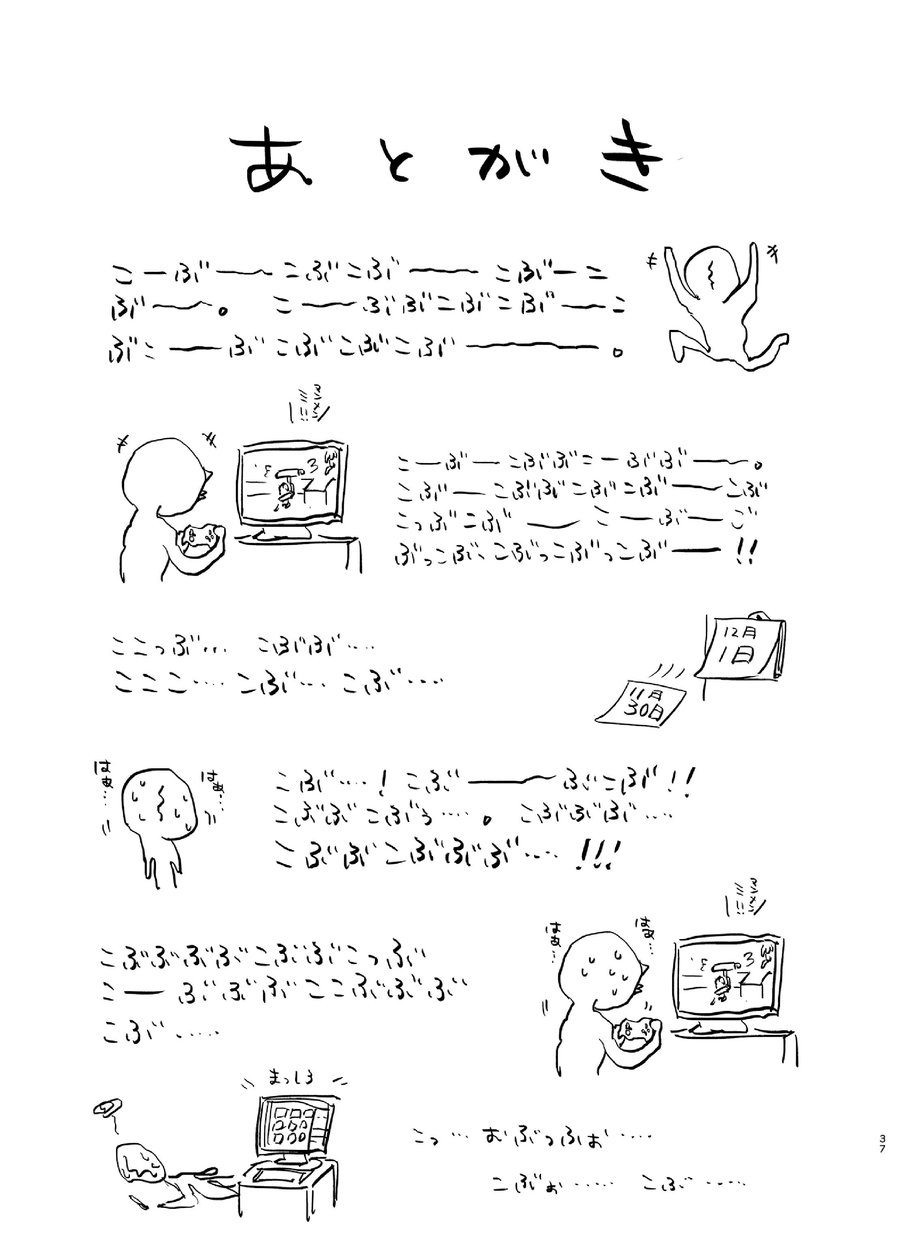 あとがき
こーぶーーこぶこぶーーこぶーこ
ぶーー。こーーぶぶこぶこぶーーこ
ぶこーーぶこぶこぶこぶーーーー。
こーぶーこぶぶこーぶぶーー。
こぶーこぶぶこぶこぶーーこぶ
こっぶこぶーーこーぶーご
ぶっこぶ、こぶっこぶっこぶーー!!
ここっぶ… こぶぶ……
こここ…… こぶ… こぶ……
12月
1日
11月
30日
はぁ…
はぁ…
こぶ……! こぶーーーぶこぶ!!
こぶぶこぶぅ……。こぶぶぶ……
こぶぶこぶぶぶ……!!!
はぁ…
はぁ…
こぶぶぶぶこぶぶこっぶ
こーーぶぶぶここぶぶぶ
こぶ……
まっしろ
こっ… おぶっふぉ……
こぶぉ…… こぶ……
37